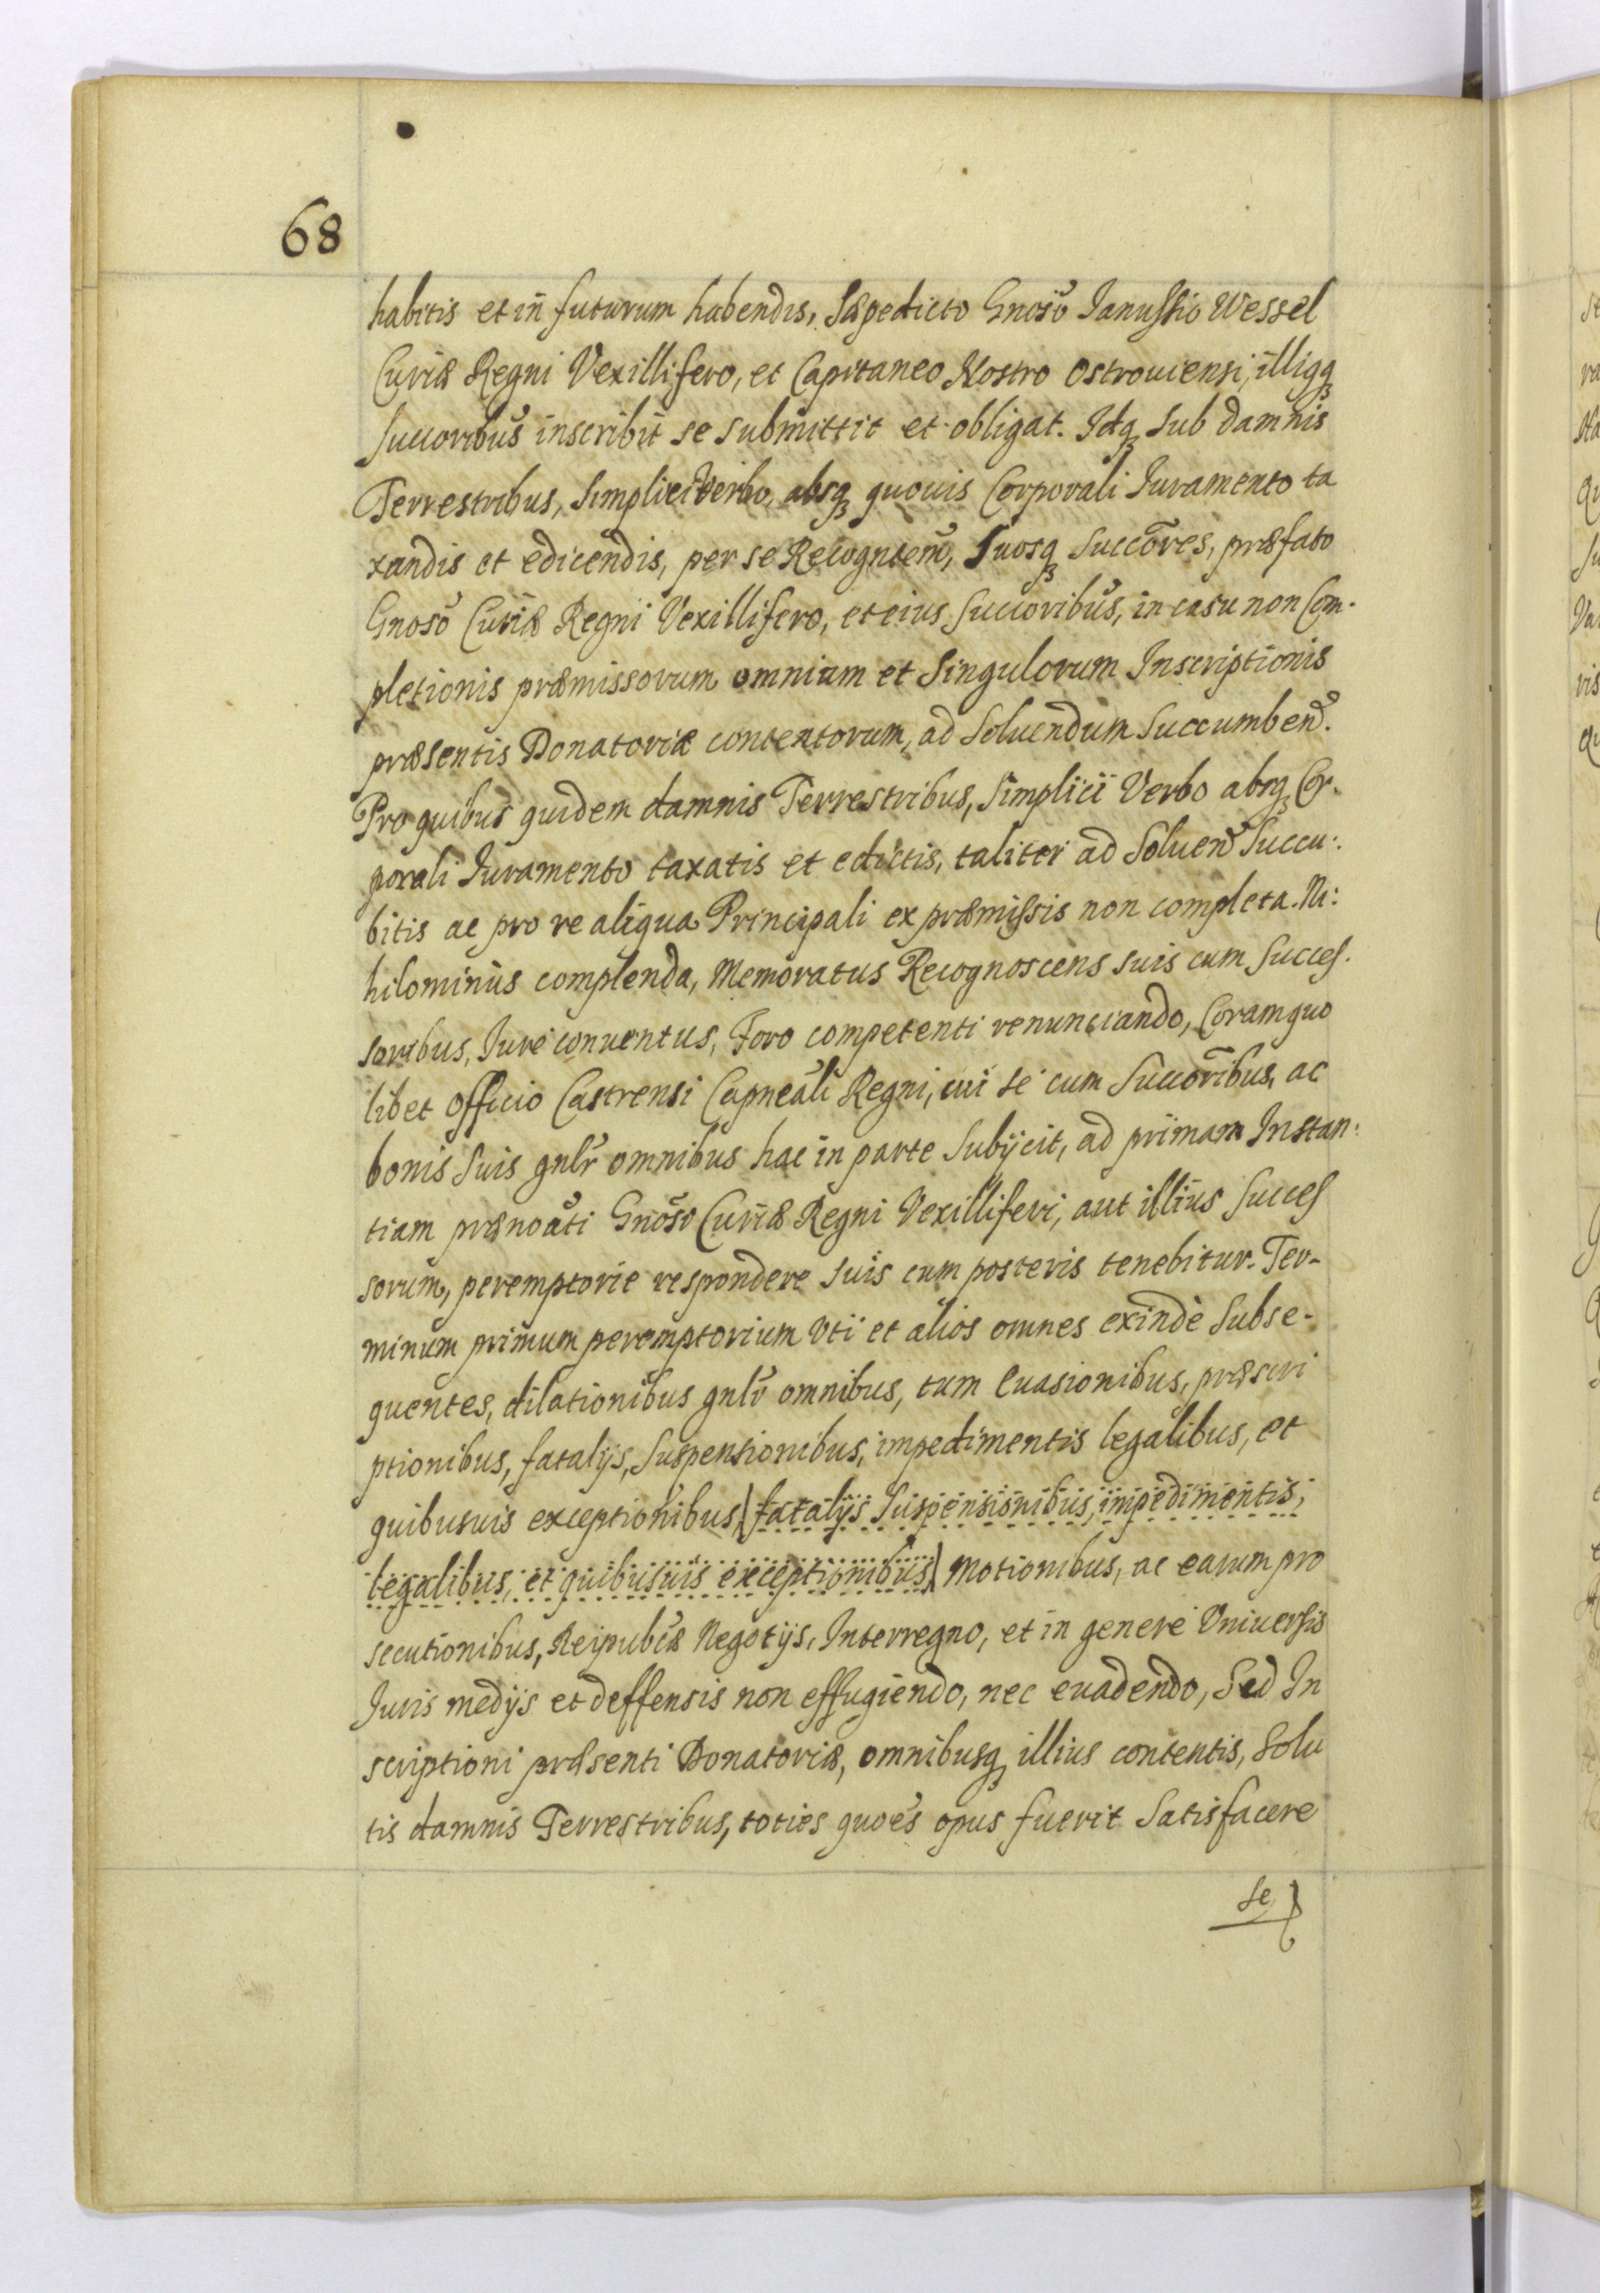 68
habitis et in futurum habendis, Sæpedicto Gnoso Janussio Wessel
Curiæ Regni Vexillifero, et Capitaneo Nostro Ostrouiensi, illiqq
succoribus inscribit se submittit et obligat. Idq sub damnis
Terrestribus, Simplici Verbo, absq quouis Corporali Iuramento ta
xandis et edicendis, per se Recogntem, Suosq Succores, præfato
Gnoso Curiæ Regni Vexillifero, et eius Succoribus, in casu non Com-
pletionis præmissorum omnium et Singulorum Inscriptionis
præsentis Donatoriæ contentorum, ad Soluendum Succumbend.
Pro quibus quidem damnis Terrestribus, Simplici Verbo absq Cor-
porali Iuramento taxatis et edictis, taliter ad Soluend Succu:
bitis ac pro re aliqua Principali ex præmissis non completa. Ni:
hilominus complenda, Memoratus Recognoscens suis cum Succes-
soribus, Jure conuentus, Foro competenti renunciando, Coram quo
libet Officio Castrensi Capneali Regni, cui se cum Succoribus, ac
bonis Suis gnlr omnibus hac in parte Subijcit, ad primam Instan:
tiam prænoati Gnoso Curiæ Regni Vexilliferi, aut illius Succes
sorum, peremptorie respondere suis cum posteris tenebitur. Ter-
minum primum peremptorium Uti et alios omnes exinde Subse-
quentes, dilationibus gnlr omnibus, tum Euasionibus, præscri
ptionibus, fatalijs, Suspensionibus, impedimentis legalibus, et
quibusuis exceptionibus, fatalijs Suspensionibus, impedimentis,
legalibus, et quibusuis exceptionibus, Motionibus, ac earum pro
secutionibus, Reipublcæ Negotijs, Interregno, et in genere Vniuersis
Juris medijs et deffensis non effugiendo, nec euadendo, Sed In
scriptioni præsenti Donatoriæ, omnibusq illius contentis, Solu
tis damnis Terrestribus, toties quoes opus fuerit Satisfacere
se